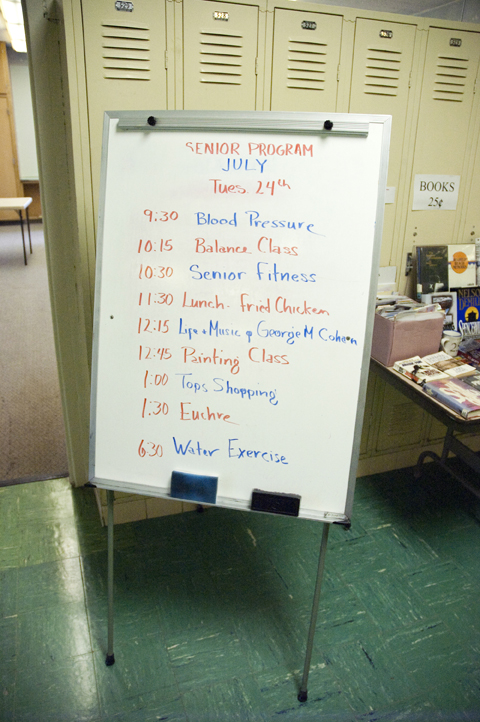 SENIOR PROGRAM
JULY
Tues. 24th
9:30 Blood Pressure
10:15 Balance Class
10:30 Senior Fitness
11:30 Lunch. Fried Chicken
12:15 Life + Music of George M Cohan
12:45 Painting Class
1:00 Tops Shopping
1:30 Euchre
6:30 Water Exercise
BOOKS
25¢
NELSON
DEMILLE